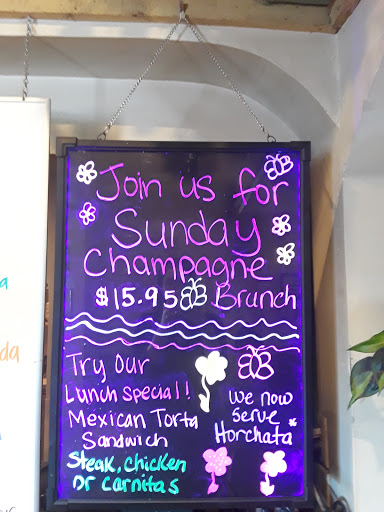 Join us for
Sunday
Champagne
$15.95 Brunch
Try Our
Lunch Special!
Mexican Torta
Sandwich
Steak, Chicken
or carnitas
We now
Serve
Horchata*